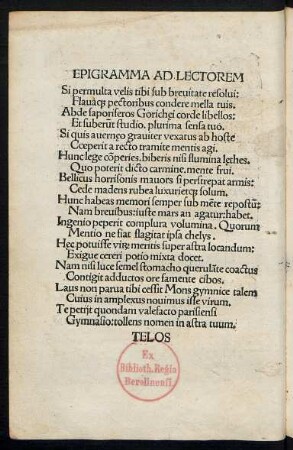 EPIGRAMMA AD.LECTOREM
Si permulta velis tibi sub breuitate resolui:
Flauaq3 pectoribus condere mella tuis.
Abde saporiferos Gorichei corde libellos:
Et suberūt studio, plurima sensa tuo.
Si quis auerneo grauiter vexatus ab hoste
Cœperit a recto tramite mentis agi.
Hunc lege cōperies. biberis nisi flumina lethes.
Quo poterit dicto carmine. mente frui.
Bellicus horrisonis mauors si perstrepat armis:
Cede madens rubea luxurietq3 solum.
Hunc habeas memori semper sub mēte repostū:
Nam breuibus: iuste mars an agatur: habet.
Ingenio peperit complura volumina. Quorum
Mentio ne fiat flagitat ipsa chelys.
Hec potuisse viri mentis super astra locandum:
Exigue cereri potio mixta docet.
Nam nisi luce semel stomacho querulāte coactus
Contigit adductos ore famente cibos.
Laus non parua tibi cessit Mons gymnice talem
Cuius in amplexus nouimus isse virum.
Te petijt quondam valefacto parisiensi
Gymnasio: tollens nomen in astra tuum.
TELOS
Ex
Biblioth. Regia
Berolinensi.